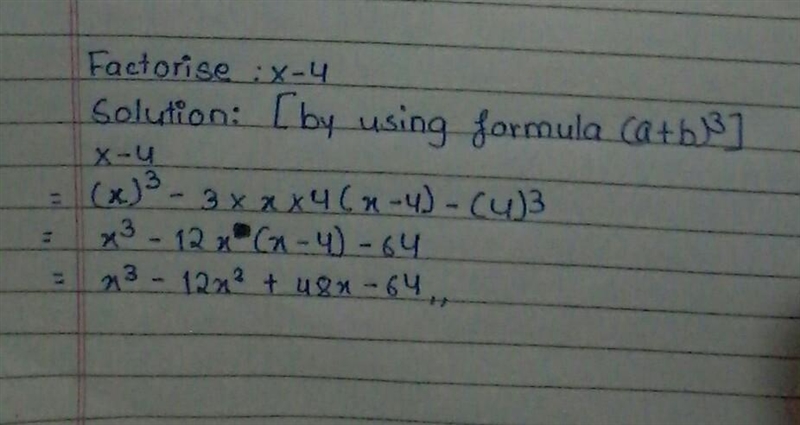 Factorise : x-4
Solution: [by using formula (a+b)³]
x-4
= (x)³ - 3 × x × 4 (x-4) - (4)3
= x³ - 12x (x-4) - 64
= x³ - 12x² + 48x - 64,,